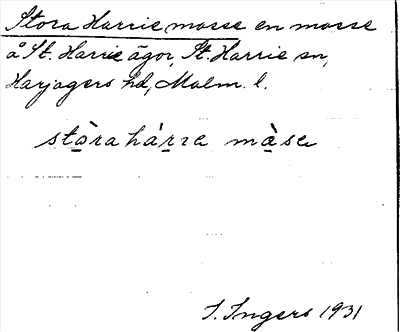 Stora Harrie mosse en mosse
å St. Harrie ägor, St. Harrie sn,
Harjagers hd, Malm. l.
stòrahárre màse
I. Ingers 1931